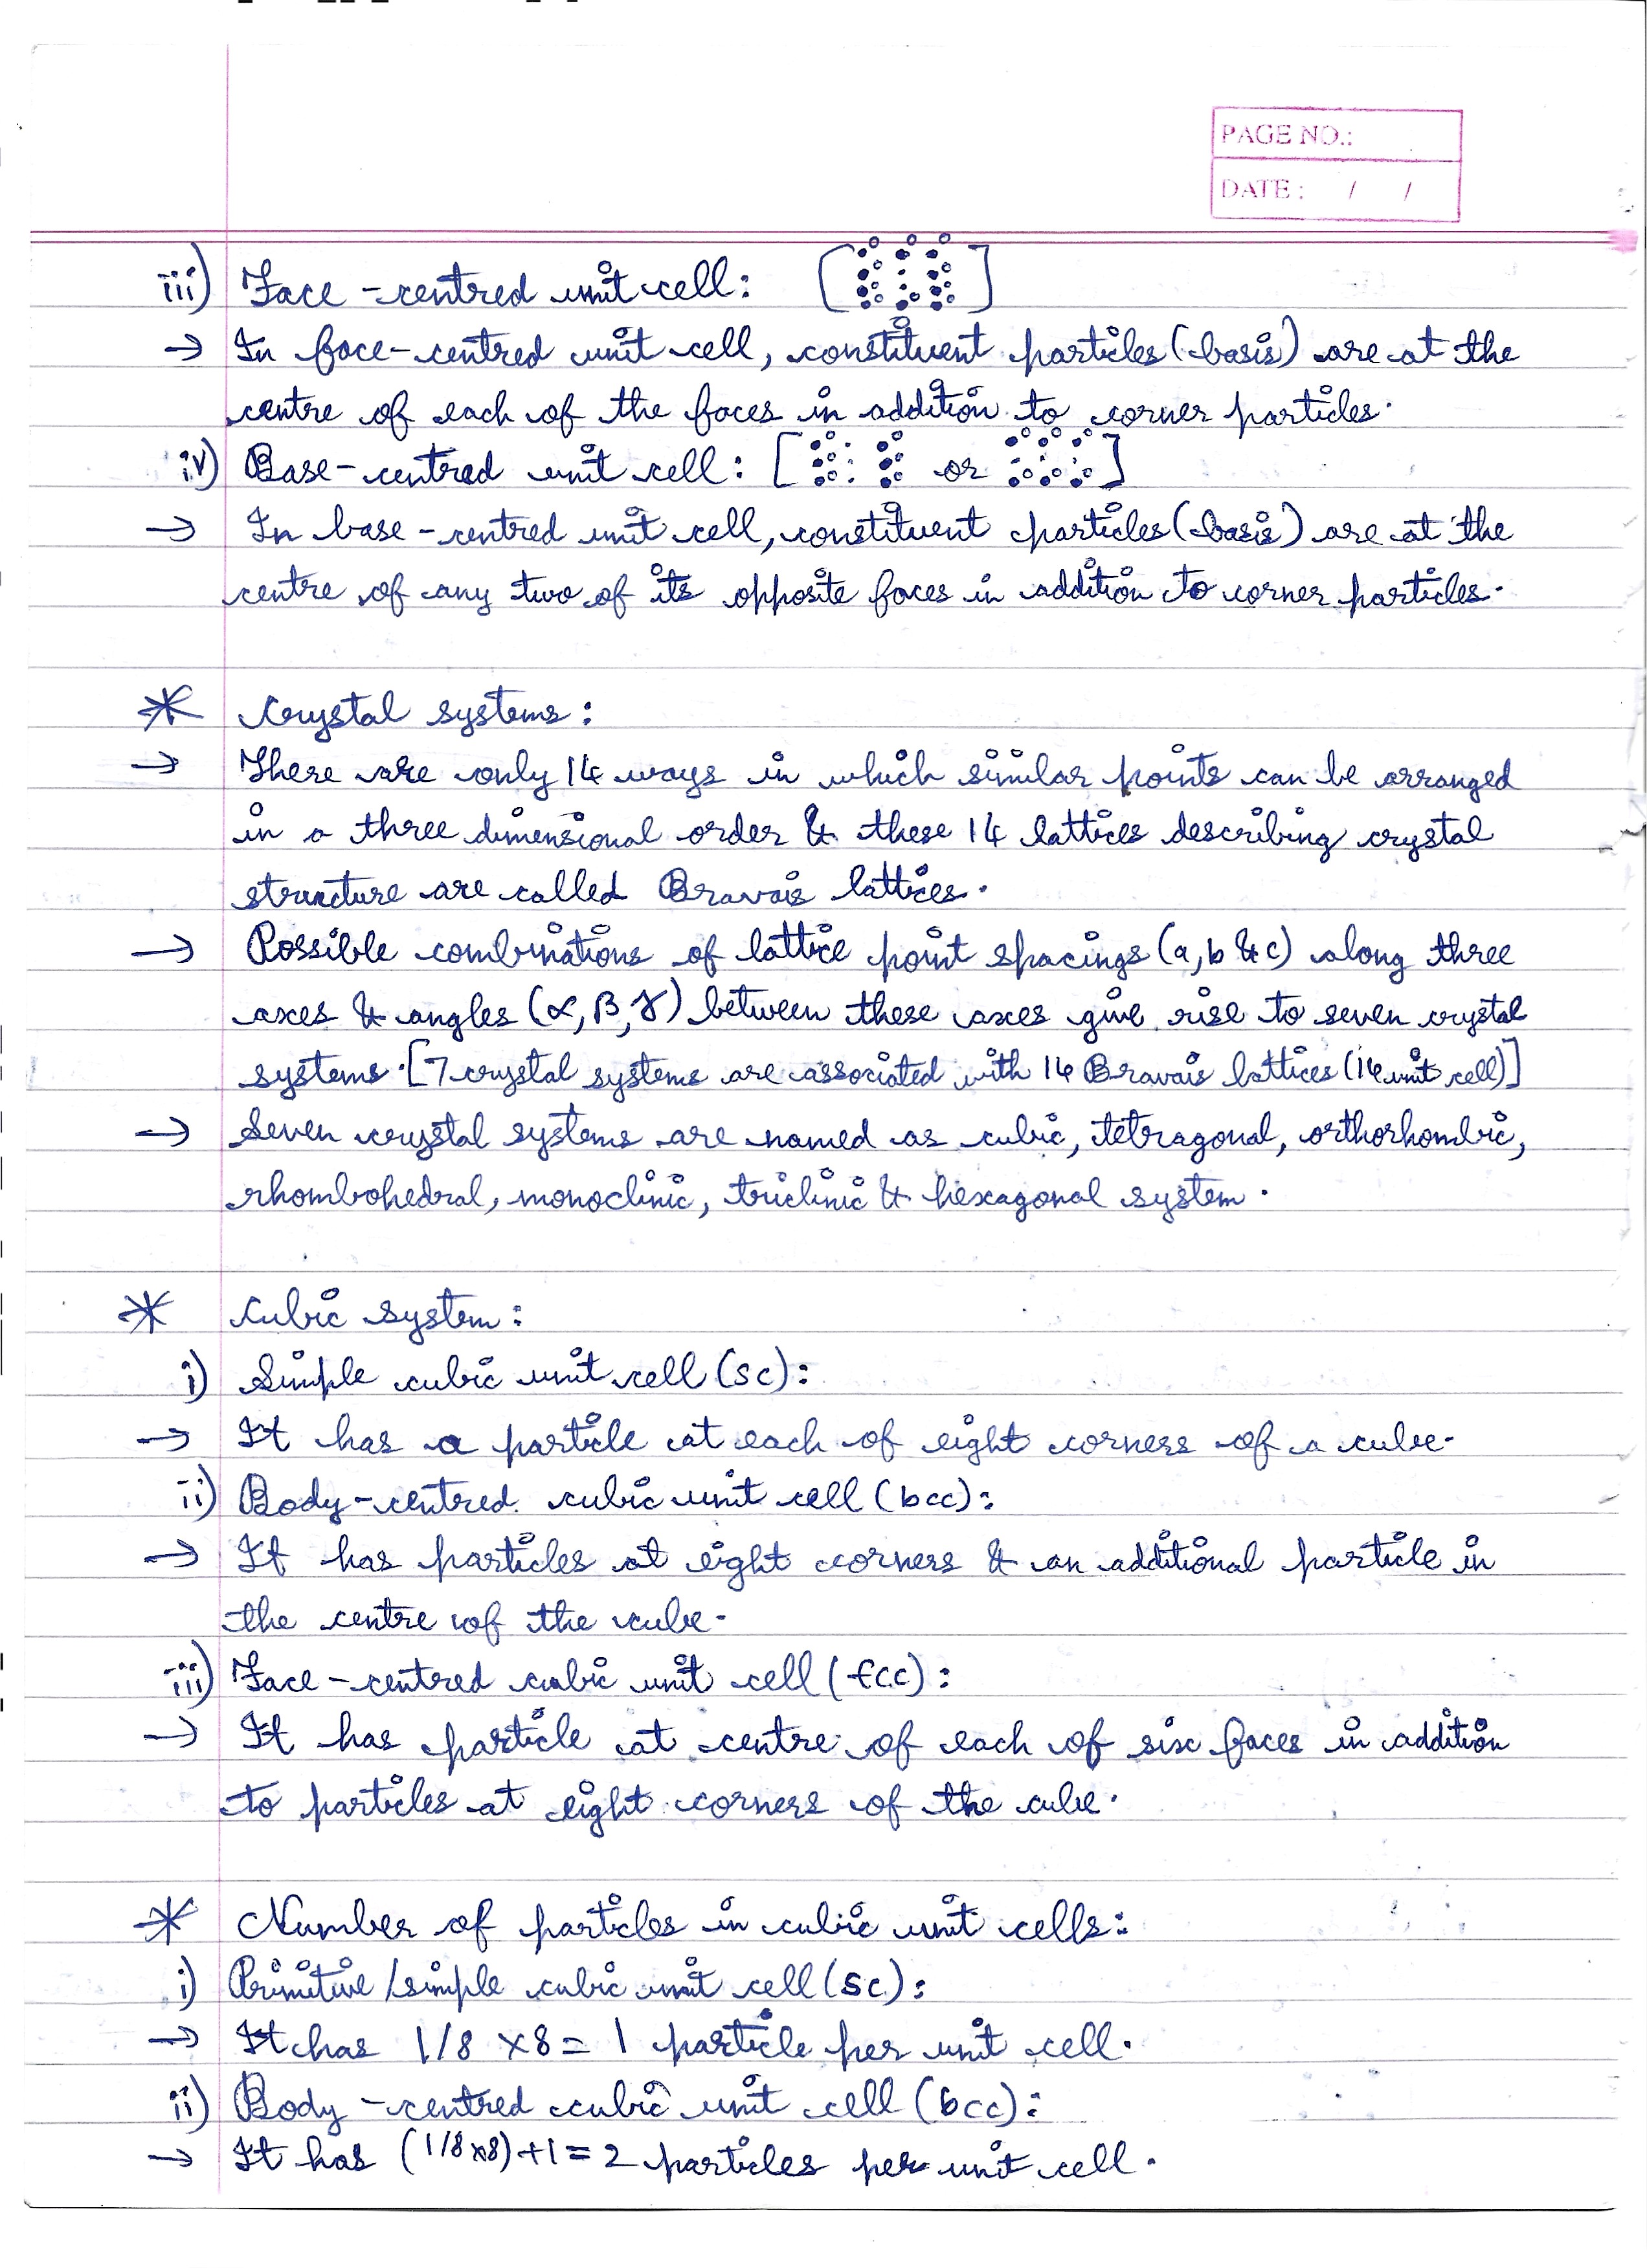 PAGE NO.:
DATE: / /
iii) Face-centred unit cell: [ ]
→ In face-centred unit cell, constituent particles (basis) are at the
centre of each of the faces in addition to corner particles.
iv) Base-centred unit cell: [ or ]
→ In base-centred unit cell, constituent particles (basis) are at the
centre of any two of its opposite faces in addition to corner particles.
* Crystal systems:
→ There are only 14 ways in which similar points can be arranged
in a three dimensional order & these 14 lattices describing crystal
structure are called Bravais lattices.
→ Possible combinations of lattice point spacings (a, b & c) along three
axes & angles (α, β, γ) between these axes give rise to seven crystal
systems. [7 crystal systems are associated with 14 Bravais lattices (14 unit cell)]
→ Seven crystal systems are named as cubic, tetragonal, orthorhombic,
rhombohedral, monoclinic, triclinic & hexagonal system.
* Cubic system:
i) Simple cubic unit cell (sc):
→ It has a particle at each of eight corners of a cube.
ii) Body-centred cubic unit cell (bcc):
→ It has particles at eight corners & an additional particle in
the centre of the cube.
iii) Face-centred cubic unit cell (fcc):
→ It has particle at centre of each of six faces in addition
to particles at eight corners of the cube.
* Number of particles in cubic unit cells:
i) Primitive/simple cubic unit cell (sc):
→ It has 1/8 × 8 = 1 particle per unit cell.
ii) Body-centred cubic unit cell (bcc):
→ It has (1/8 × 8) + 1 = 2 particles per unit cell.